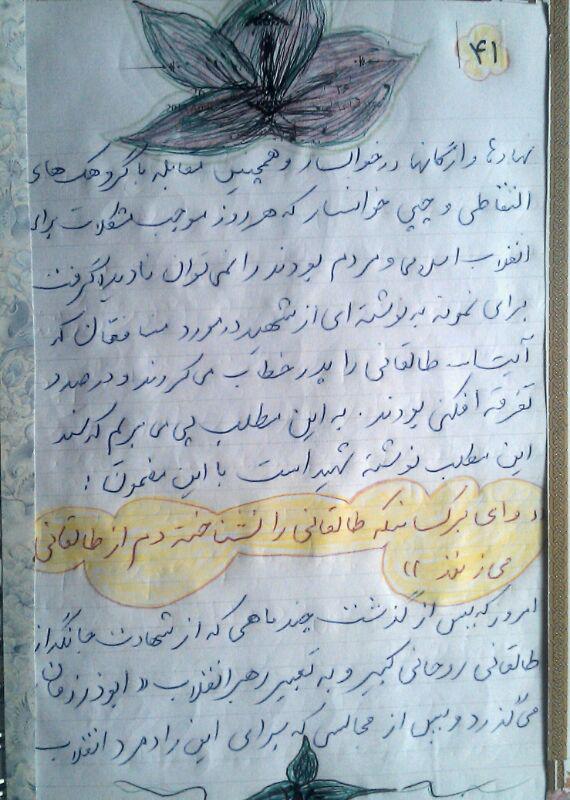 ۴۱
نهادها و ارگانها در خوانسار و همچنین مقابله با گروهک های
التقاطی و چپی خوانسار که هر روز موجب مشکلات برای
انقلاب اسلامی و مردم بودند را نمی توان نادیده گرفت
برای نمونه به نوشته ای از شهید در مورد منافقان که
آیت الله طالقانی را پدر خطاب می کردند و در صدد
تفرقه افکنی بودند. به این مطلب پی می بریم که سند
این مطلب نوشته شهید است با این مضمون :
« وای بر کسانیکه طالقانی را نشناخته دم از طالقانی
می زنند »
امروز که پس از گذشت چند ماهی که از شهادت جانگداز
طالقانی روحانی کبیر و به تعبیر رهبر انقلاب « ابوذر زمان
می گذرد و پس از مجالسی که برای این رادمرد انقلاب